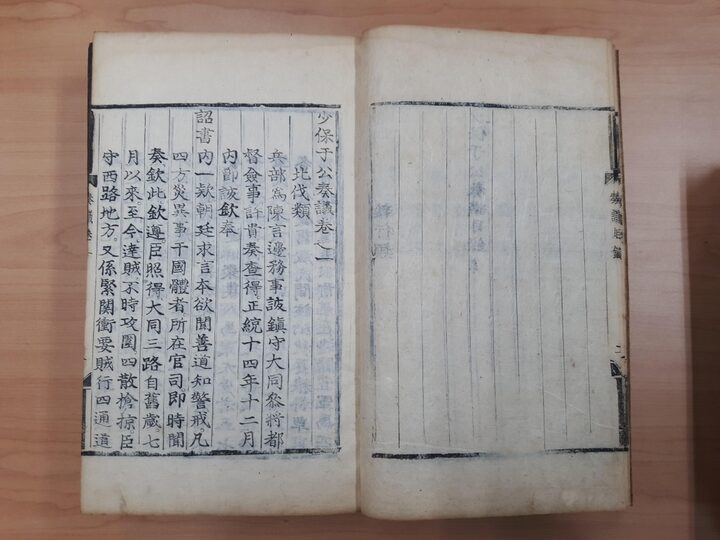 奏議目錄
二
少保于公奏議卷之一
北伐類
兵部為陳言邊務事該鎮守大同叅將都
督僉事許貴奏查得正統十四年十二月
內節該欽奉
詔書內一欵朝廷求言本欲聞善道知警戒凡
四方災異事干國體者所在官司即時聞
奏欽此欽遵臣照得大同三路自舊歲七
月以來至今達賊不時攻圍四散搶掠臣
守西路地方又係緊關衝要賊行四通道
奏議卷一